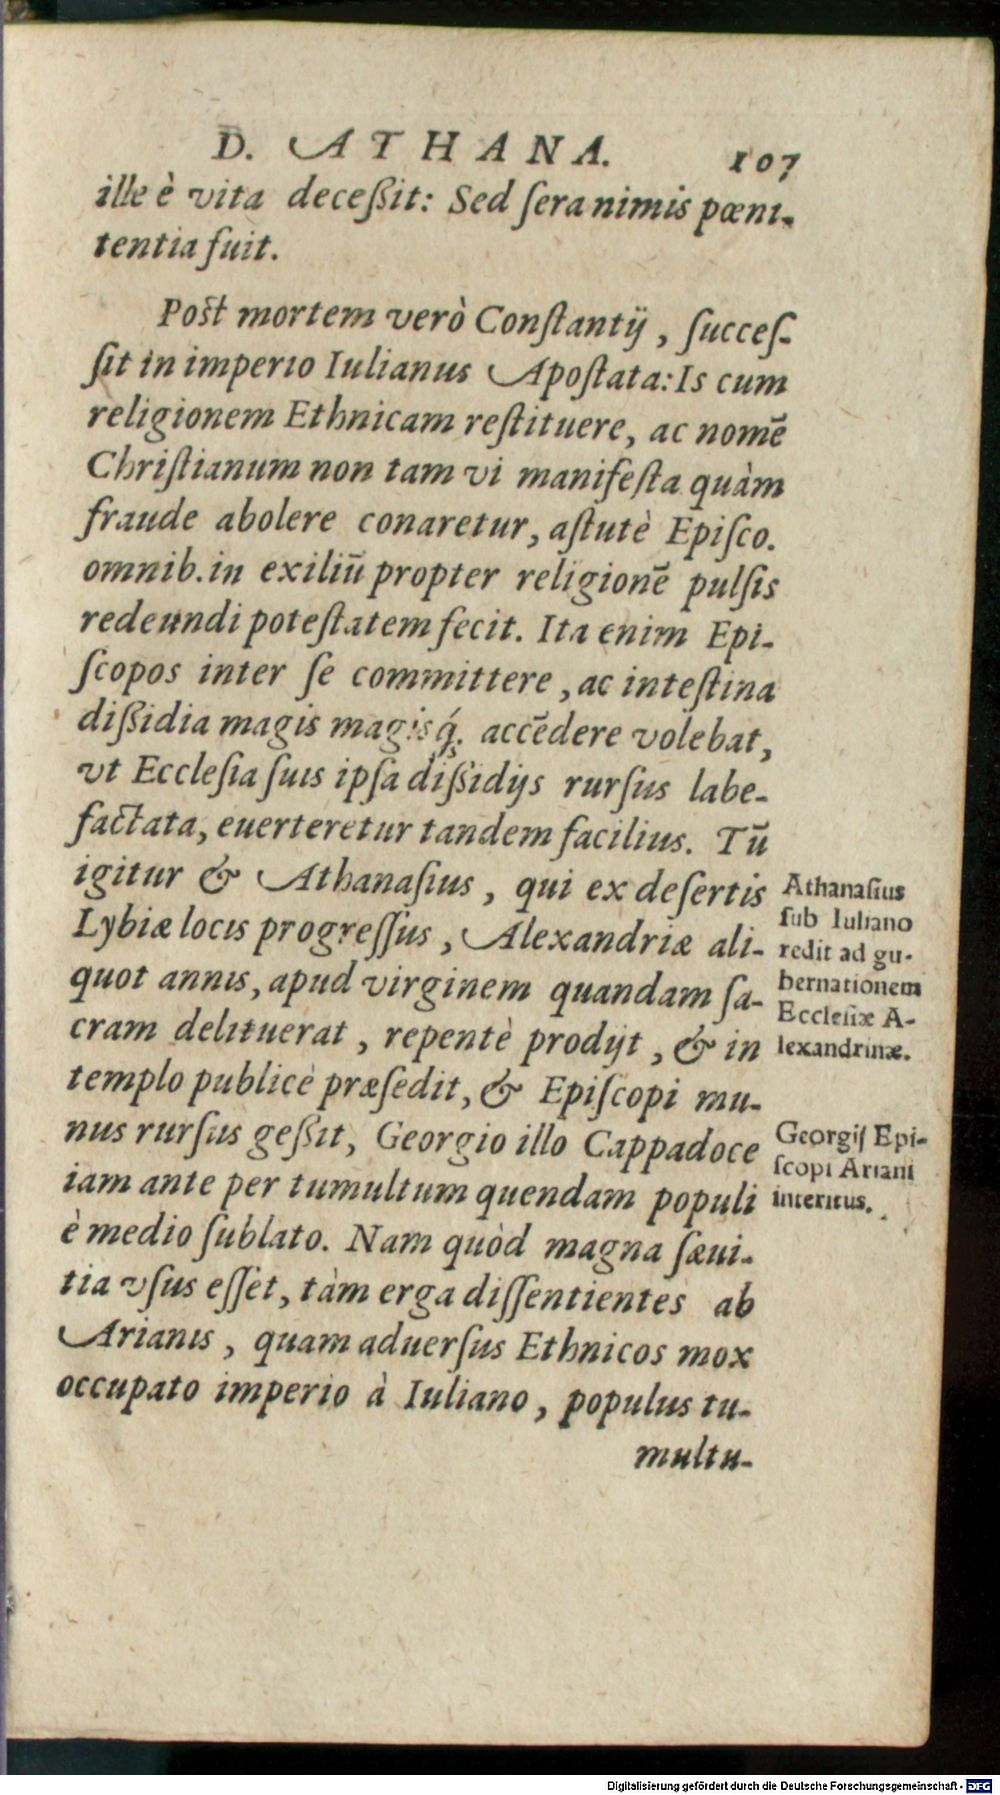 D. ATHANA. 107
ille è vita deceßit: Sed ſera nimis pœni-
tentia fuit.
Post mortem verò Conſtantij, ſucceſ-
ſit in imperio Iulianus Apoſtata: Is cum
religionem Ethnicam reſtituere, ac nomē
Chriſtianum non tam vi manifeſta quàm
fraude abolere conaretur, aſtutè Epiſco.
omnib. in exiliū propter religionē pulſis
redeundi poteſtatem fecit. Ita enim Epi-
ſcopos inter ſe committere, ac inteſtina
dißidia magis magisq́; accēdere volebat,
vt Eccleſia ſuis ipſa dißidijs rurſus labe-
factata, euerteretur tandem facilius. Tū
igitur & Athanaſius, qui ex deſertis
Lybiæ locis progreſſus, Alexandriæ ali-
quot annis, apud virginem quandam ſa-
cram delituerat, repentè prodijt, & in
templo publicè præſedit, & Epiſcopi mu-
nus rurſus geßit, Georgio illo Cappadoce
iam ante per tumultum quendam populi
è medio ſublato. Nam quòd magna ſæui-
tia vſus eſſet, tàm erga diſſentientes ab
Arianis, quam aduerſus Ethnicos mox
occupato imperio à Iuliano, populus tu-
multu-
Athanaſius
ſub Iuliano
redit ad gu-
bernationem
Eccleſiæ A-
lexandrinæ.
Georgij Epi-
ſcopi Ariani
interitus.
Digitalisierung gefördert durch die Deutsche Forschungsgemeinschaft - DFG